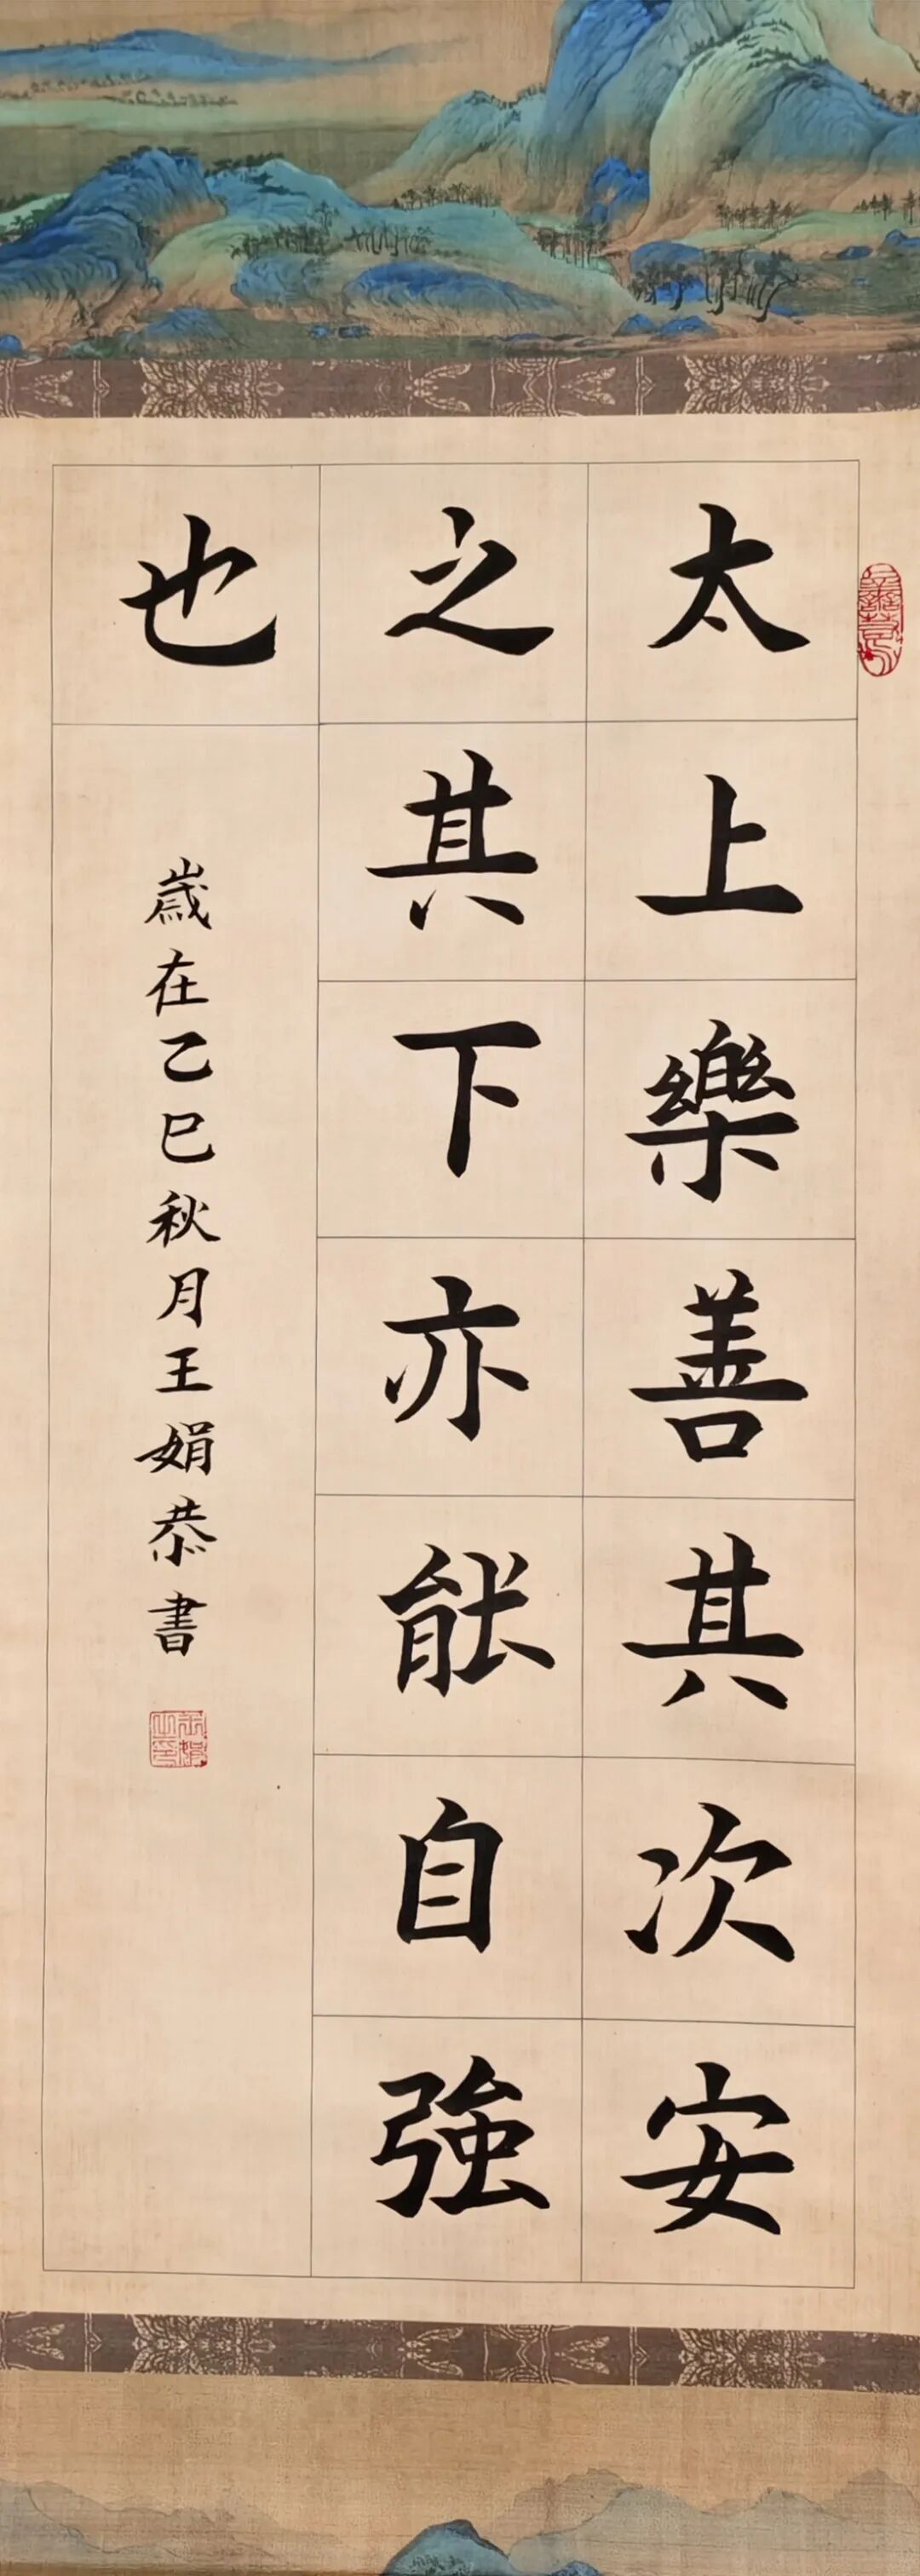 太上樂善其次安
之其下亦能自強
也
歲在乙巳秋月王娟恭書
王娟之印